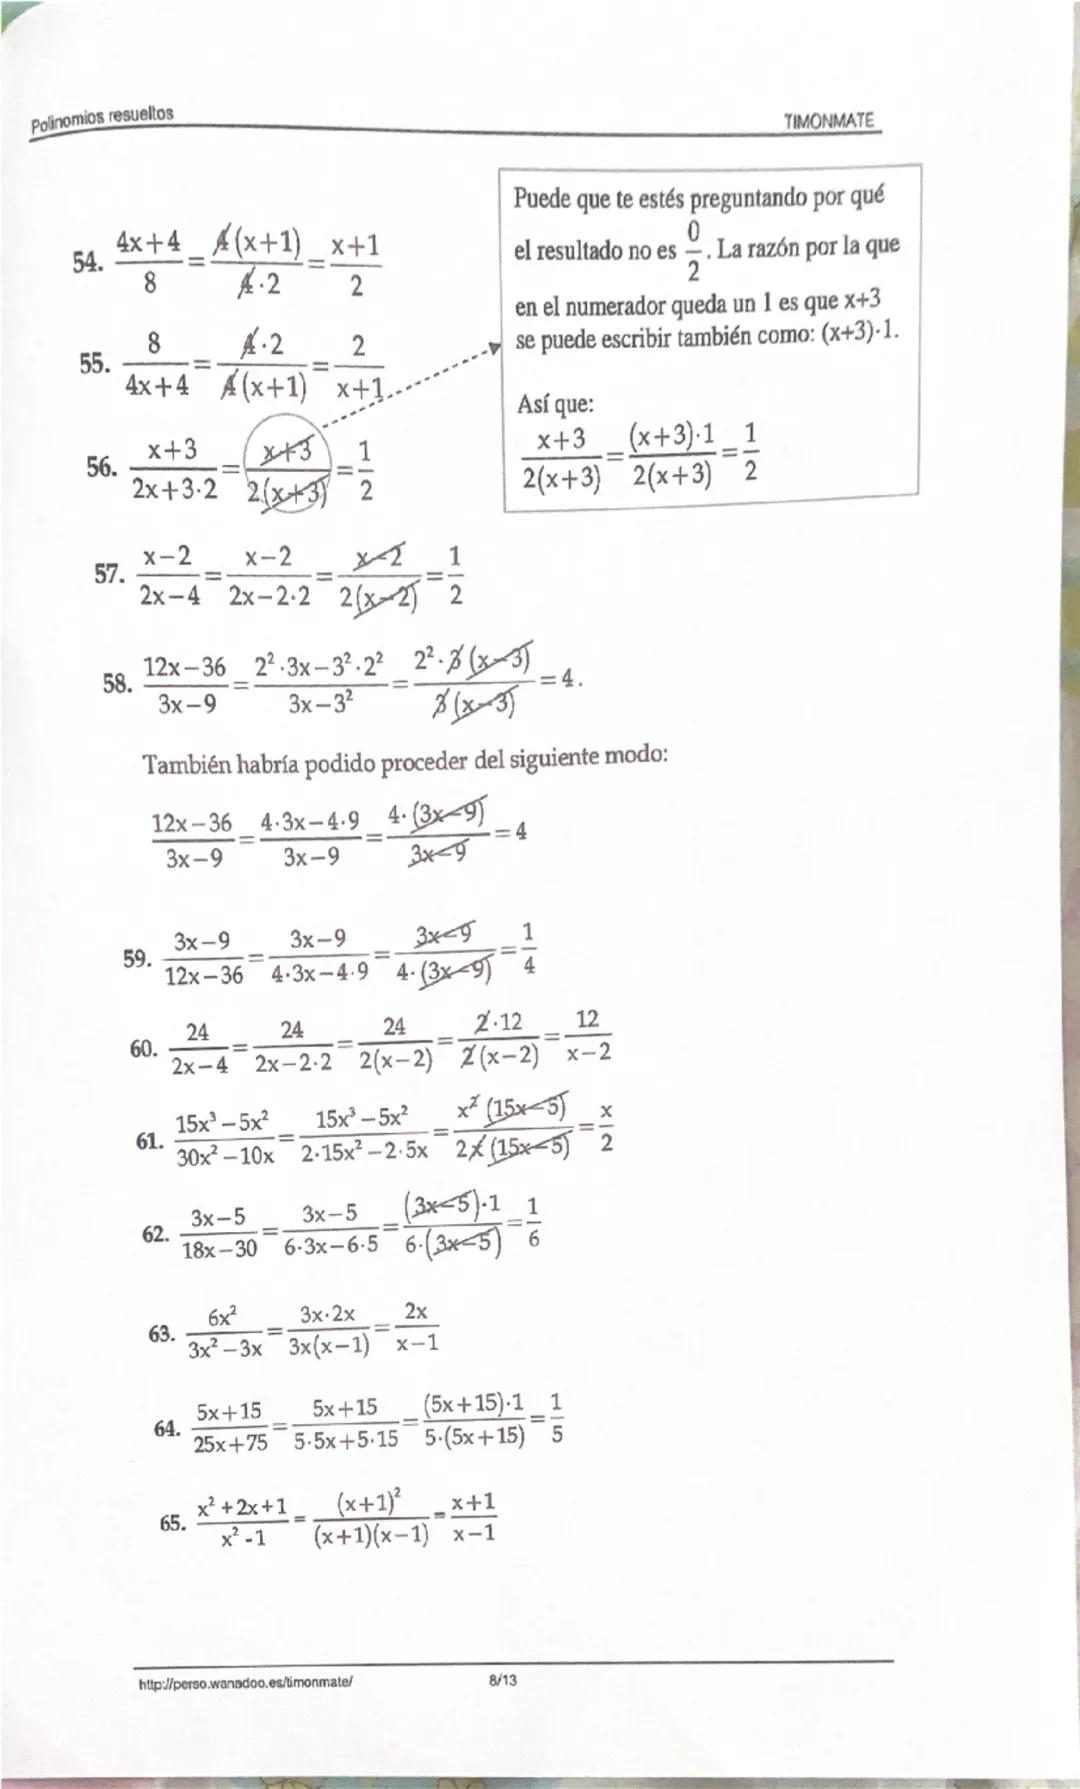 Polinomios resueltos
TIMONMATE
Puede que te estés preguntando por qué
el resultado no es 0/2. La razón por la que
en el numerador queda un 1 es que x+3
se puede escribir también como: (x+3)·1.
Así que:
x+3/2(x+3) = (x+3)·1/2(x+3) = 1/2
54. 4x+4/8 = 4(x+1)/4·2 = x+1/2
55. 8/4x+4 = 4·2/4(x+1) = 2/x+1
56. x+3/2x+3·2 = x+3/2(x+3) = 1/2
57. x−2/2x−4 = x−2/2x−2·2 = x−2/2(x−2) = 1/2
58. 12x−36/3x−9 = 2²·3x−3²·2²/3x−3² = 2²·3(x−3)/3(x−3) = 4.
También habría podido proceder del siguiente modo:
12x−36/3x−9 = 4·3x−4·9/3x−9 = 4·(3x−9)/3x−9 = 4
59. 3x−9/12x−36 = 3x−9/4·3x−4·9 = 3x−9/4·(3x−9) = 1/4
60. 24/2x−4 = 24/2x−2·2 = 24/2(x−2) = 2·12/2(x−2) = 12/x−2
61. 15x³−5x²/30x²−10x = 15x³−5x²/2·15x²−2·5x = x²(15x−5)/2x(15x−5) = x/2
62. 3x−5/18x−30 = 3x−5/6·3x−6·5 = (3x−5)·1/6·(3x−5) = 1/6
63. 6x²/3x²−3x = 3x·2x/3x(x−1) = 2x/x−1
64. 5x+15/25x+75 = 5x+15/5·5x+5·15 = (5x+15)·1/5·(5x+15) = 1/5
65. x²+2x+1/x²-1 = (x+1)²/(x+1)(x−1) = x+1/x−1
http://perso.wanadoo.es/timonmate/
8/13